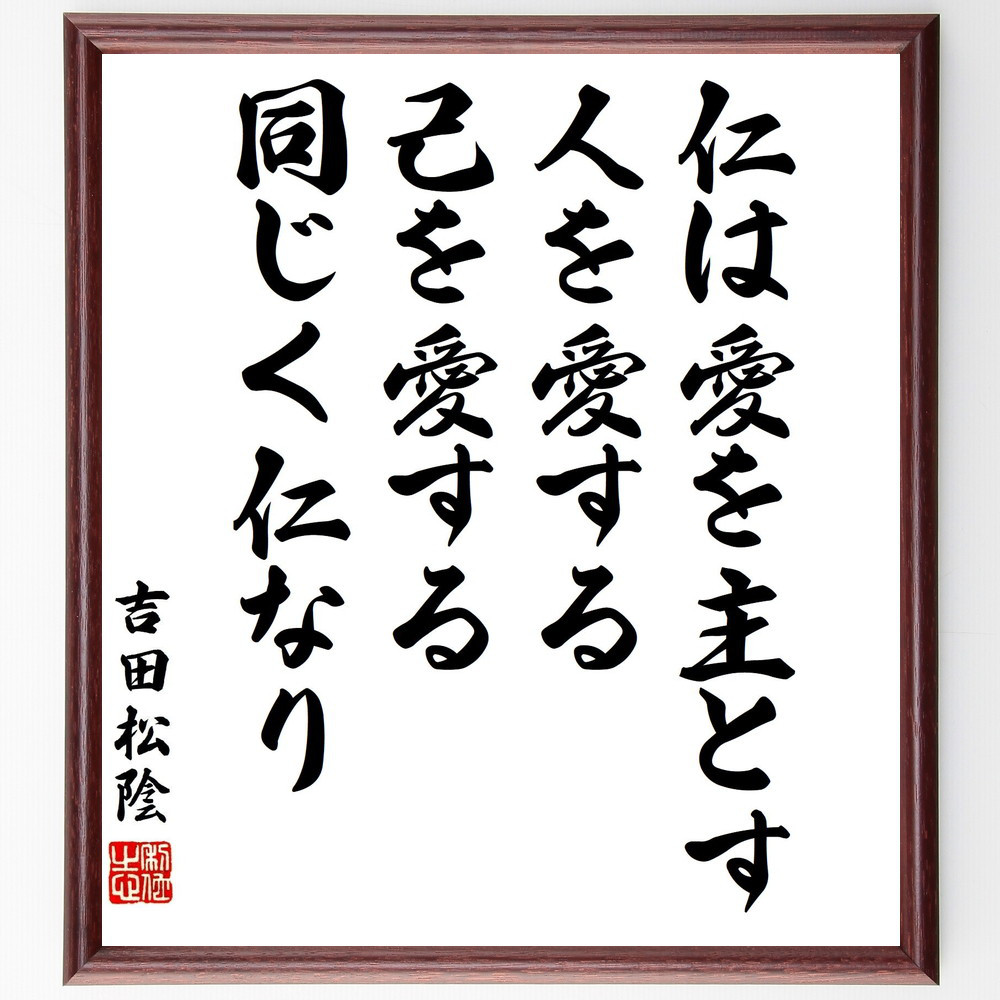 仁は愛を主とす
人を愛する
己を愛する
同じく仁なり
吉田松陰